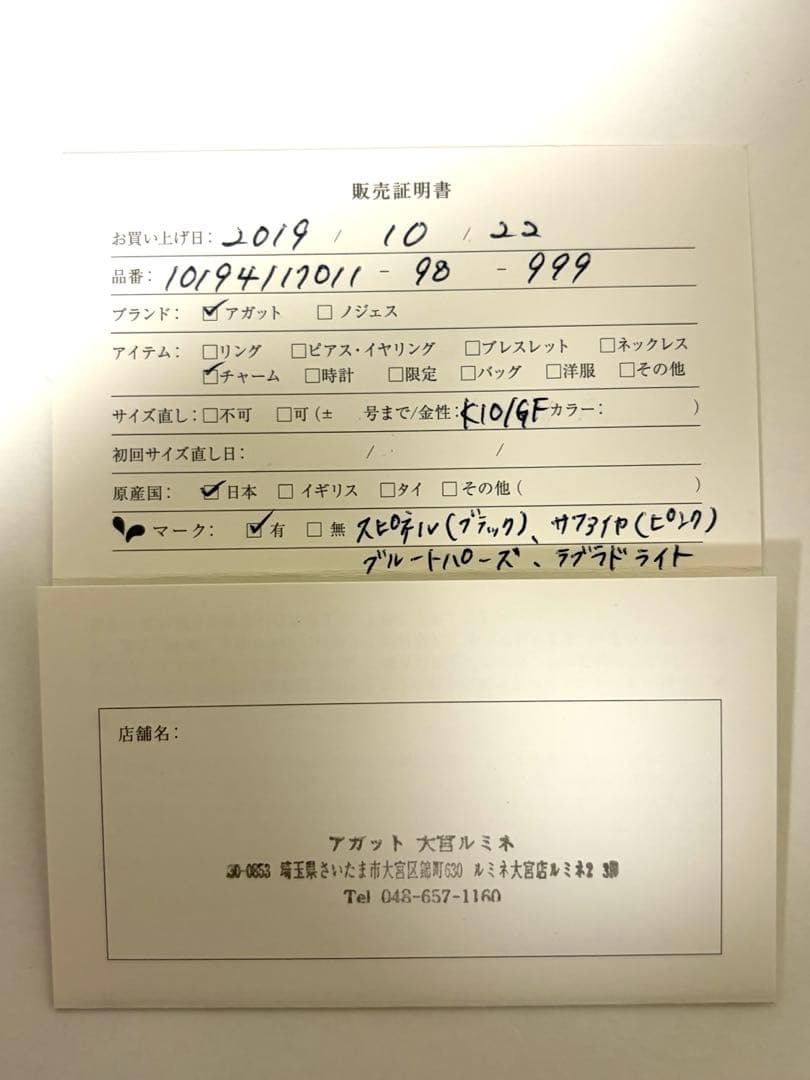 販売証明書
お買い上げ日: 2019 / 10 / 22
品番: 10194117011 - 98 - 999
ブランド: ☑アガット □ ノジェス
アイテム: □リング □ピアス・イヤリング □ブレスレット □ネックレス
☑チャーム □時計 □限定 □バッグ □洋服 □その他
サイズ直し: □不可 □可 (± 号まで/金性: K10/GF カラー: )
初回サイズ直し日: / /
原産国: ☑日本 □ イギリス □タイ □ その他 ( )
マーク: ☑有 □ 無 スピネル(ブラック)、サファイヤ(ピンク)
ブルートパーズ、ラブラドライト
店舗名:
アガット 大宮ルミネ
30-0853 埼玉県さいたま市大宮区錦町630 ルミネ大宮店ルミネ2 3階
Tel 048-657-1160